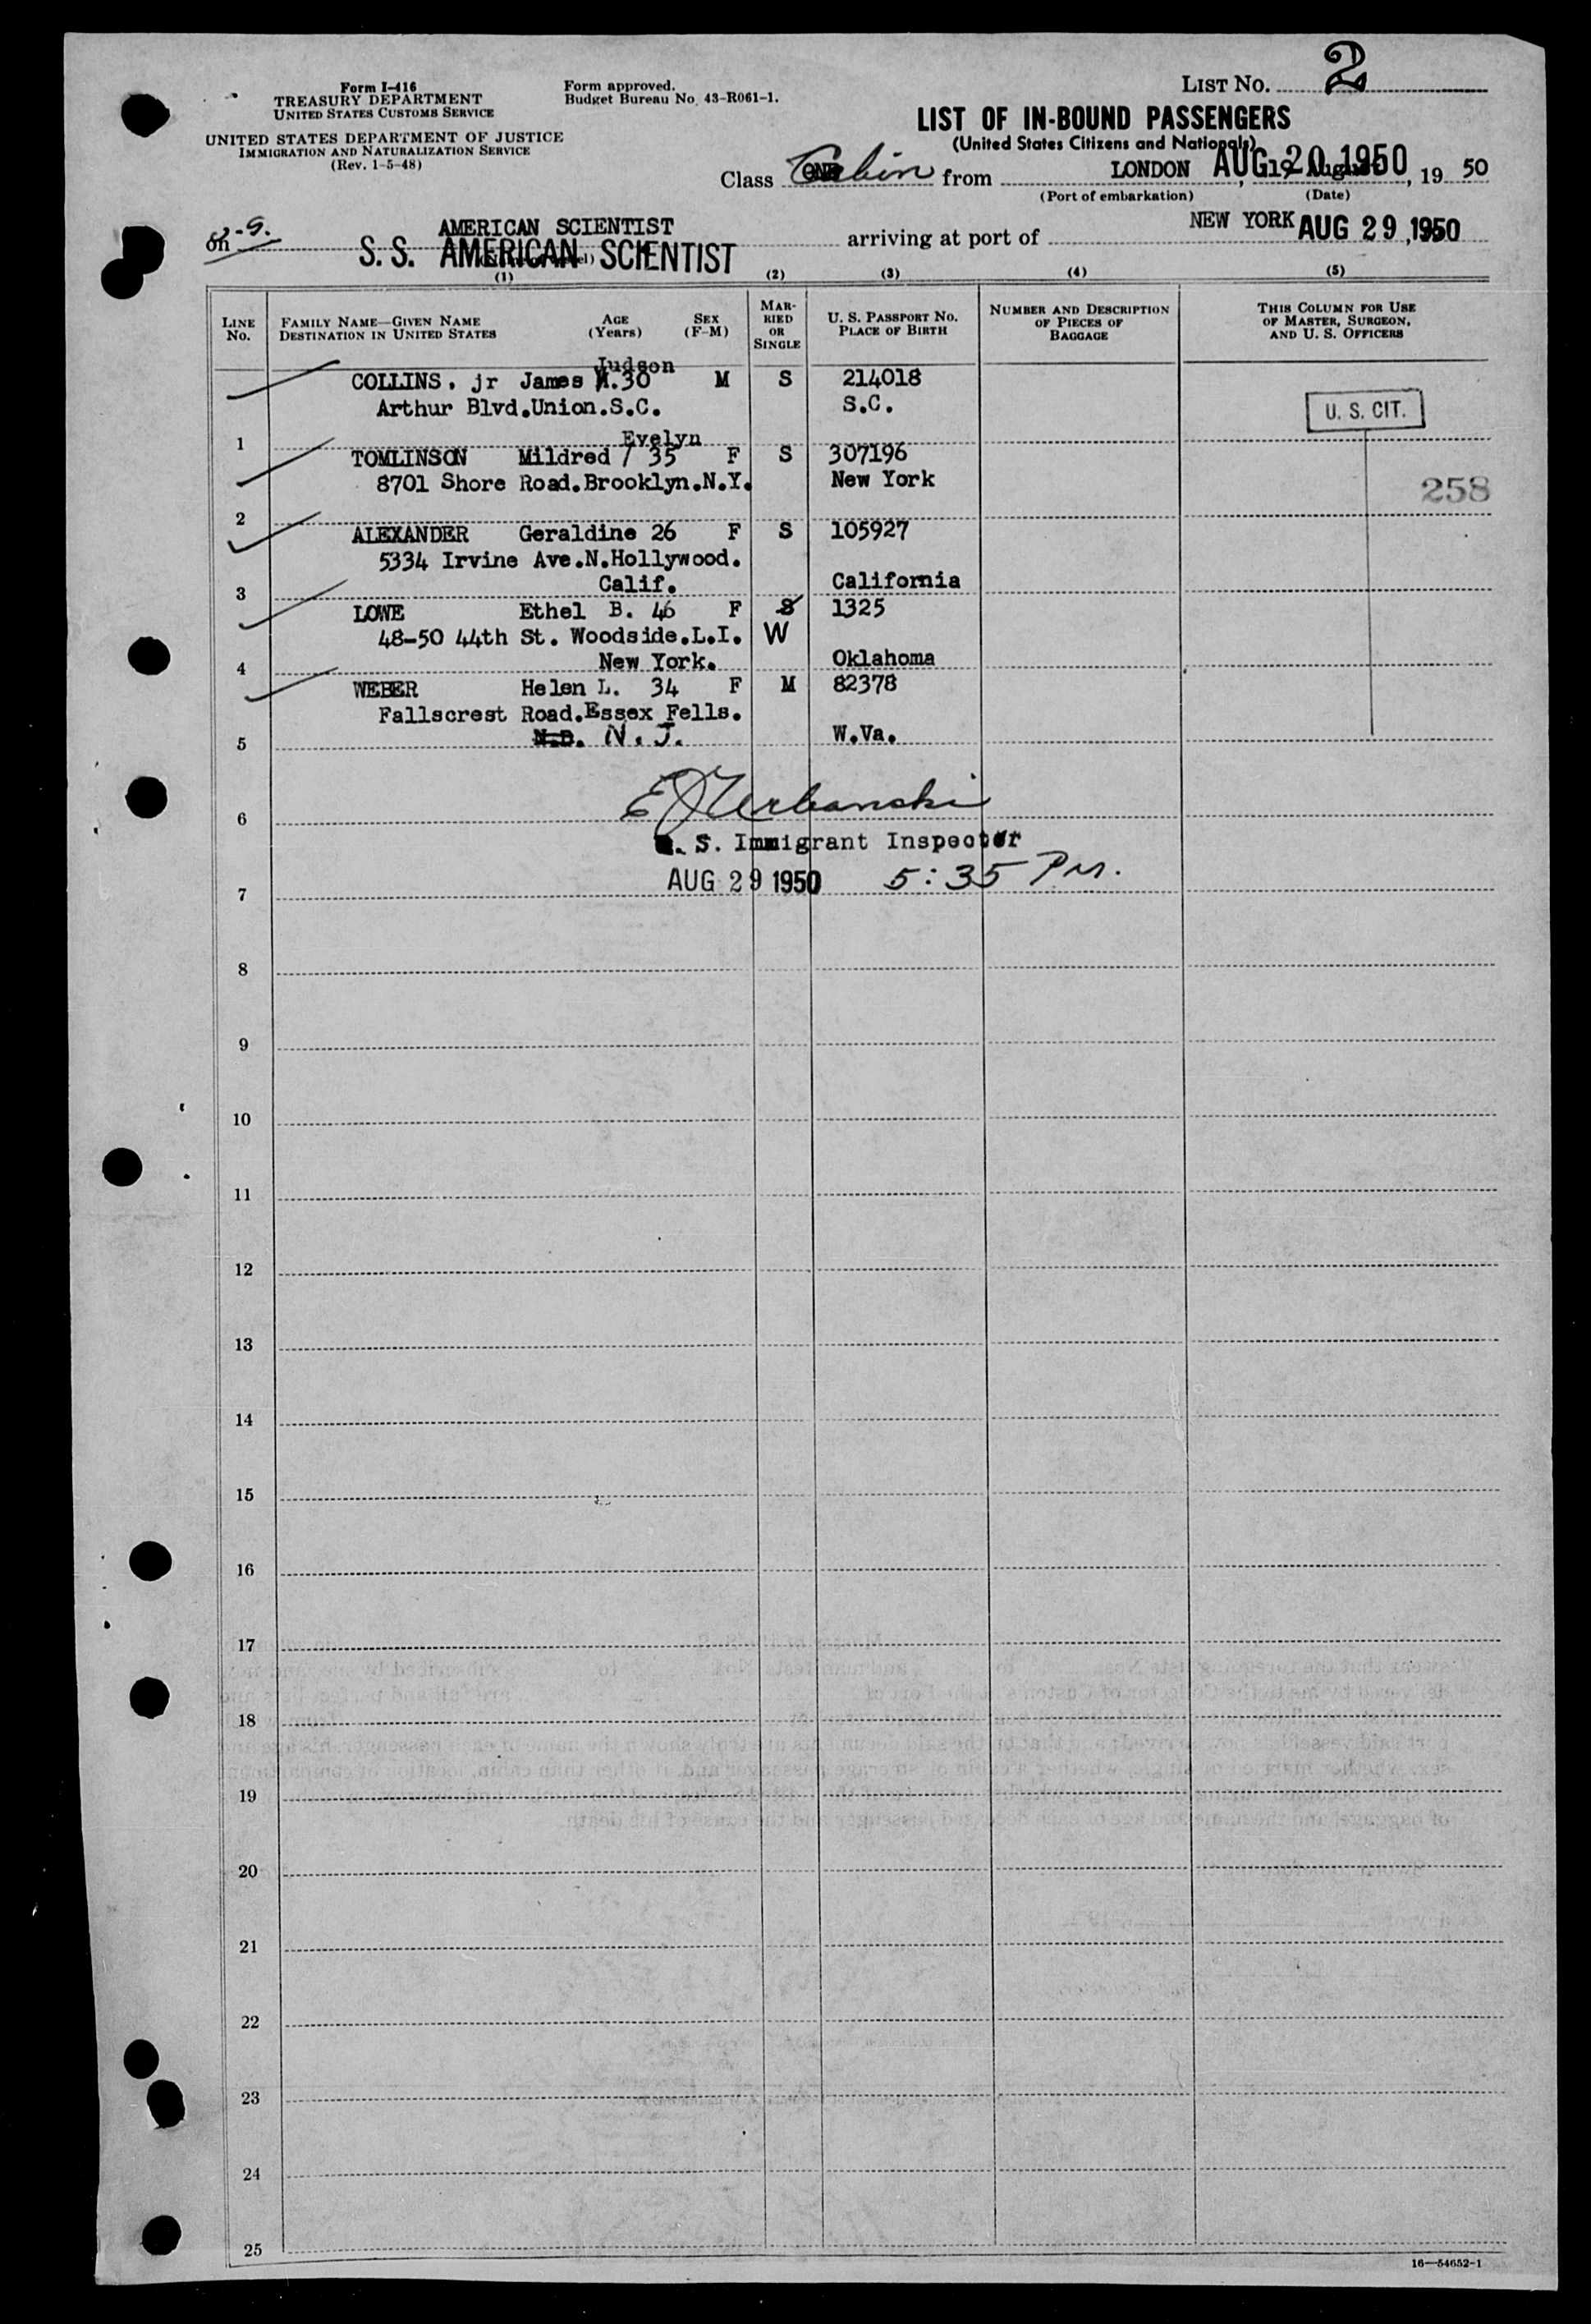 Form I-416
TREASURY DEPARTMENT
UNITED STATES CUSTOMS SERVICE
UNITED STATES DEPARTMENT OF JUSTICE
IMMIGRATION AND NATURALIZATION SERVICE
(Rev. 1-5-48)
Form approved.
Budget Bureau No. 43-R061-1.
LIST NO. 2
LIST OF IN-BOUND PASSENGERS
(United States Citizens and Nationals)
Class Cabin from LONDON, AUG 20 1950, 19 50
(Port of embarkation) (Date)
on AMERICAN SCIENTIST arriving at port of NEW YORK AUG 29, 1950
S. S. AMERICAN SCIENTIST
(1) (2) (3) (4) (5)
LINE No. FAMILY NAME—GIVEN NAME DESTINATION IN UNITED STATES AGE (Years) SEX (F-M) MARRIED OR SINGLE U. S. PASSPORT NO. PLACE OF BIRTH NUMBER AND DESCRIPTION OF PIECES OF BAGGAGE THIS COLUMN FOR USE OF MASTER, SURGEON, AND U. S. OFFICERS
Judson
COLLINS. jr James 30 M S 214018
Arthur Blvd.Union.S.C. S.C. U. S. CIT.
1
Evelyn
TOMLINSON Mildred / 35 F S 307196
8701 Shore Road.Brooklyn.N.Y. New York 258
2
ALEXANDER Geraldine 26 F S 105927
5334 Irvine Ave.N.Hollywood.
3 Calif. California
LOWE Ethel B. 46 F S 1325
48-50 44th St. Woodside.L.I. W
4 New York. Oklahoma
WEBER Helen L. 34 F M 82378
Fallscrest Road.Essex Fells.
5 N. J. W.Va.
E J Urbanski
6
U. S. Immigrant Inspector
AUG 29 1950 5:35 PM.
7
8
9
10
11
12
13
14
15
16
17
18
19
20
21
22
23
24
25
16—54652-1